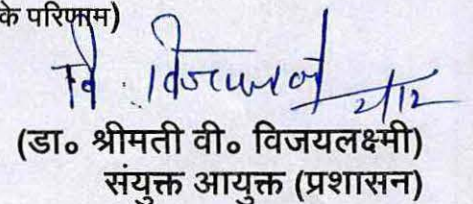 के परिणाम)
2/12
(डा० श्रीमती वी० विजयलक्ष्मी)
संयुक्त आयुक्त (प्रशासन)